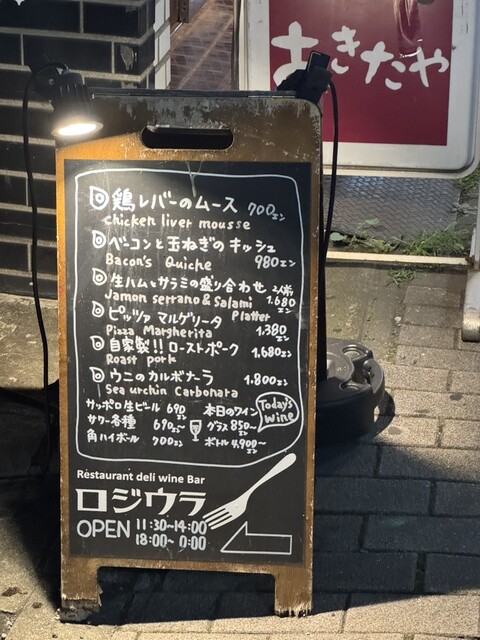 あきたや
鶏レバーのムース 700エン
chicken liver mousse
ベーコンと玉ねぎのキッシュ
Bacon's Quiche 980エン
生ハムとサラミの盛り合わせ 2人前
Jamon serrano & Salami 1.680エン
Platter
ピッツァ マルゲリータ
Pizza Margherita 1.380エン
自家製!! ローストポーク 1,680エン
Roast pork
ウニのカルボナーラ 1.800エン
Sea urchin Carbonara
サッポロ生ビール 690エン 本日のワイン Today's wine
サワー各種 690エン〜 グラス 850〜エン
角ハイボール 700エン ボトル 4,900〜エン
Restaurant deli wine Bar
ロジウラ
OPEN 11:30~14:00
18:00~0:00